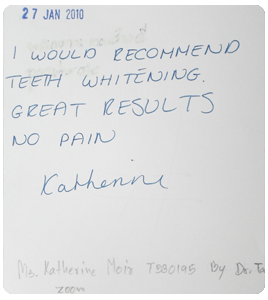 27 JAN 2010
I WOULD RECOMMEND
TEETH WHITENING.
GREAT RESULTS
NO PAIN
Katherine
Ms. Katherine By Dr.
zoom